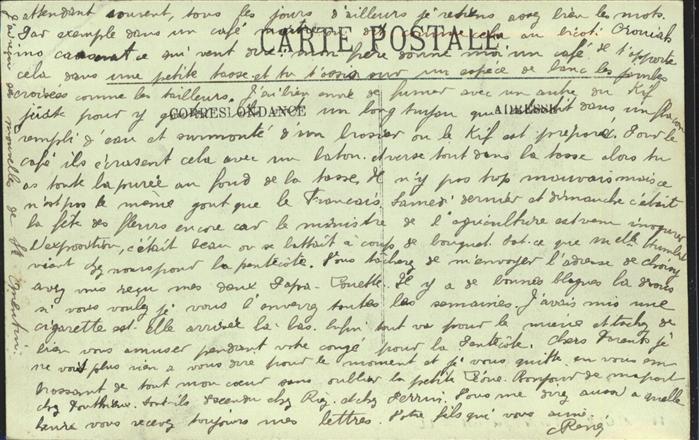 attendant souvent, tous les jours d'ailleurs je retiens assez bien les mots.
Par exemple dans un café
CARTE POSTALE
ce qui veut dire mon frère donne moi un café je t'apporte
cela dans une petite tasse et tu t'assois sur un espèce de banc les jambes
croisées comme les tailleurs. J'ai bien envie de fumer avec un autre du Kif
juste pour y un long tuyau qui dans un flacon
CORRESPONDANCE
ADRESSE
rempli d'eau et surmonté d'un brasier ou le Kif est préparé. Pour le
café ils écrasent cela avec un baton et verse tout dans la tasse alors tu
as toute la purée au fond de la tasse. n'y pas trop mauvais mais ce
n'est pas le même gout que le Français. Samedi dernier et dimanche c'était
la fête des fleurs encore car le ministre de l'agriculture est venu inogurer
l'exposition, c'était beau on se battait à coups de bouquet. Est-ce que Melle
vient chez nous pour la pentecôte. Vous tâcherez de m'envoyer l'adresse de
avez vous reçu mes deux Papa-Pouette. Il y a de bonnes blagues la dedans
si vous voulez je vous l'enverrez toutes les semaines. J'avais mis une
cigarette est-Elle arrivée la-bas. Enfin tout va pour le mieux et tachez de
bien vous amuser pendant votre congé pour la Pentecôte. Chers Parents je
ne vois plus rien a vous dire pour le moment et je vous quitte en vous em
brassant de tout mon coeur sans oublier la petite Bonjour de ma part
chez Sont-ils descendu chez Roy et chez Perrin. Vous me direz aussi a quelle
heure vous recevez toujours mes lettres. Votre fils qui vous aime
René
de nouvelles de St Quentin